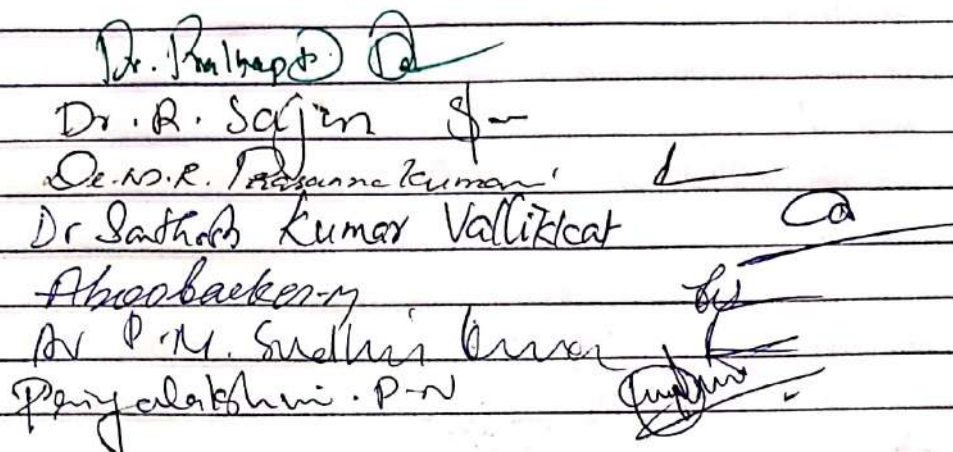 Dr. Prathap
Dr. R. Sajin
Dr. N.R. Prasannakumari
Dr Santhosh Kumar Vallikkat
Aboobacker-M
P.M. Sudhir Kumar
Priyalakshmi. P-N